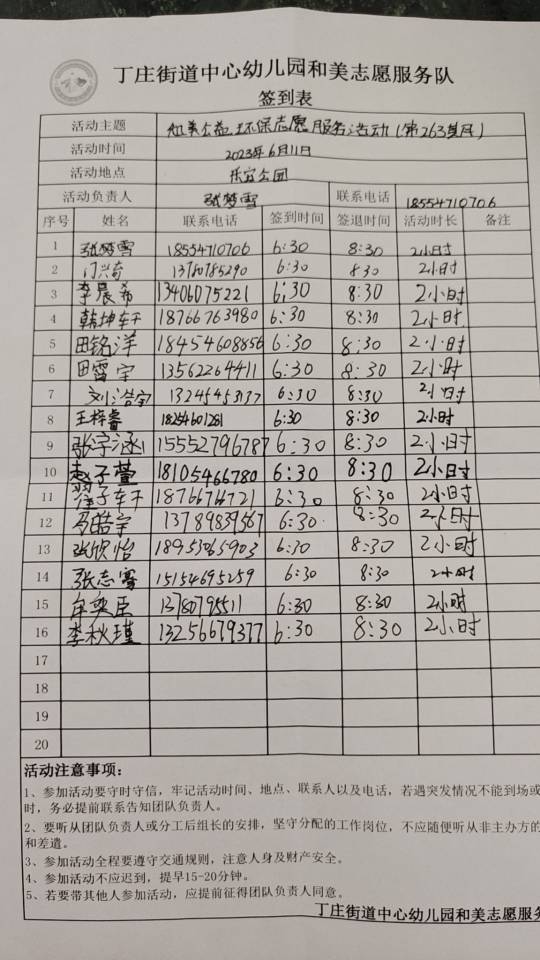 丁庄街道中心幼儿园和美志愿服务队
签到表
活动主题 和美公益环保志愿服务活动(第263期)
活动时间 2023年6月11日
活动地点 乐安公园
活动负责人 张梦雪 联系电话 18554710706
序号 姓名 联系电话 签到时间 签退时间 活动时长 备注
1 张梦雪 18554710706 6:30 8:30 2小时
2 门兴奇 13780785290 6:30 8:30 2小时
3 李晨希 13406075221 6:30 8:30 2小时
4 韩坤轩 18766763980 6:30 8:30 2小时
5 田铭洋 18454608856 6:30 8:30 2小时
6 田雷宇 13562264411 6:30 8:30 2小时
7 刘浩宇 13245453137 6:30 8:30 2小时
8 王梓睿 18254601261 6:30 8:30 2小时
9 张宇涵 15552796787 6:30 8:30 2小时
10 赵子萱 18105466780 6:30 8:30 2小时
11 子轩 18766766721 6:30 8:30 2小时
12 马皓宇 13789839567 6:30 8:30 2小时
13 张欣怡 18953065903 6:30 8:30 2小时
14 张志雪 15154695259 6:30 8:30 2小时
15 牟奕臣 13780795511 6:30 8:30 2小时
16 李秋瑾 13256679377 6:30 8:30 2小时
17
18
19
20
活动注意事项:
1、参加活动要守时守信,牢记活动时间、地点、联系人以及电话,若遇突发情况不能到场或
时,务必提前联系告知团队负责人。
2、要听从团队负责人或分工后组长的安排,坚守分配的工作岗位,不应随便听从非主办方的
和差遣。
3、参加活动全程要遵守交通规则,注意人身及财产安全。
4、参加活动不应迟到,提早15-20分钟。
5、若要带其他人参加活动,应提前征得团队负责人同意。
丁庄街道中心幼儿园和美志愿服务